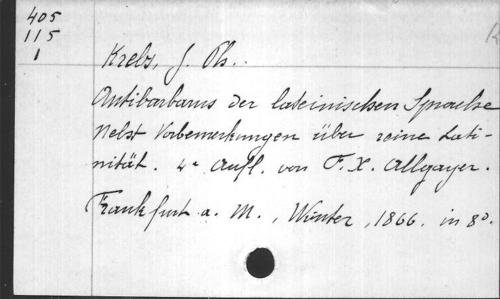 405
115
1
Krebs, J. Ph.
Antibarbarus der lateinischen Sprache
nebst Vorbemerkungen über reine Lati-
nität. 4e Aufl. von F. X. Allgayer.
Frankfurt a. M., Winter, 1866. in 8o.